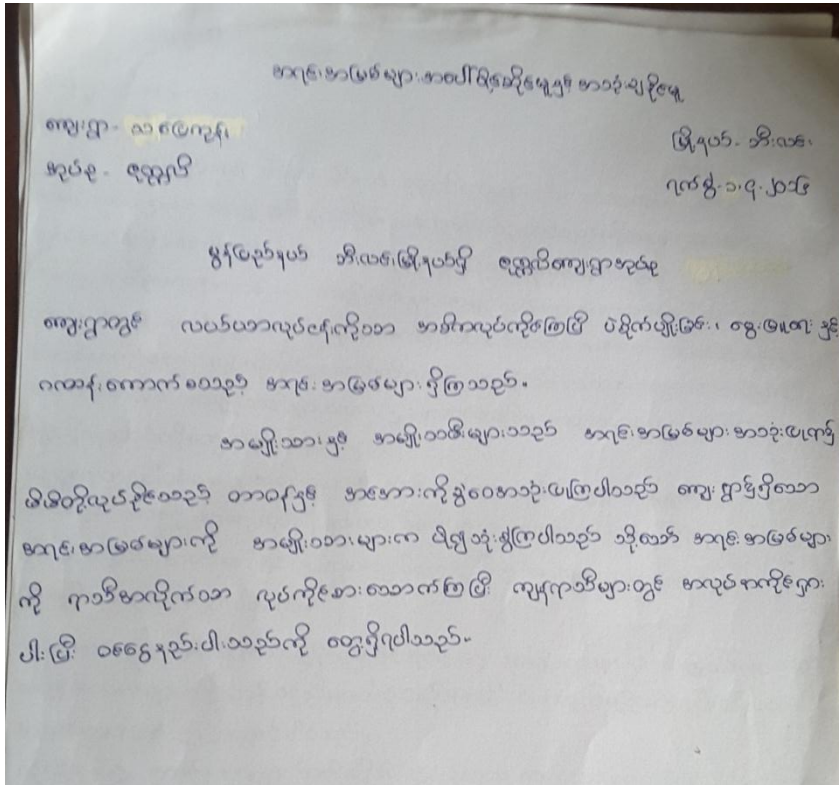 အရင်းအမြစ်များအပေါ်ပိုင်ဆိုင်မှုနှင့် အသုံးချနိုင်မှု
ကျေးရွာ - သပြေကုန်း
မြို့နယ် - ဘီးလင်း
အုပ်စု - ဇုတ္ထုလိ
ရက်စွဲ - ၁.၄.၂၀၁၆
မွန်ပြည်နယ် ဘီးလင်းမြို့နယ်ရှိ ဇုတ္ထုလိကျေးရွာအုပ်စု
ကျေးရွာတွင် လယ်ယာလုပ်ငန်းကိုသာ အဓိကလုပ်ကိုင်ကြပြီး ပဲစိုက်ပျိုးခြင်း၊ မွေးမြူရေး နှင့်
ဂဏန်းကောက်စသည့် အရင်းအမြစ်များရှိကြသည်။
အမျိုးသားနှင့် အမျိုးသမီးများသည် အရင်းအမြစ်များအသုံးပြု၍
မိမိတို့လုပ်နိုင်သည့် တာဝန်နှင့် အအားကိုခွဲဝေအသုံးပြုကြပါသည် ကျေးရွာ၌ရှိသော
အရင်းအမြစ်များကို အမျိုးသားများက ပို၍သုံးစွဲကြပါသည် သို့သော် အရင်းအမြစ်များ
ကို ရာသီအလိုက်သာ လုပ်ကိုင်စားသောက်ကြပြီး ကျန်ရာသီများတွင် အလုပ်အကိုင်ရှား
ပါးပြီး ဝင်ငွေနည်းပါးသည်ကို တွေ့ရှိရပါသည်။